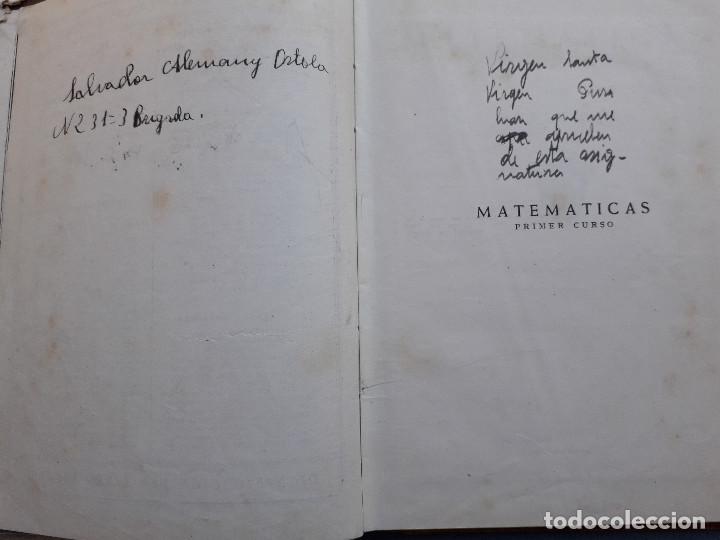 Salvador Alemany Ortola
N 231=3 Brigada.
Virgen Santa
Virgen Pura
haz que me
aprueben
de esta asig-
natura
MATEMATICAS
PRIMER CURSO
todocoleccion
todocoleccion.net